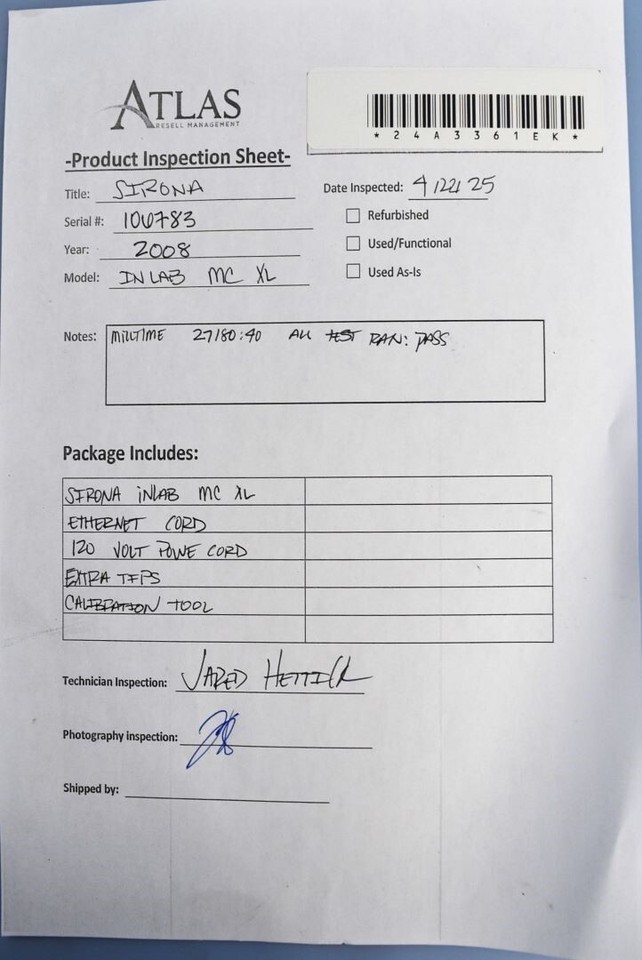 ATLAS
RESELL MANAGEMENT
*24A3361EK*
-Product Inspection Sheet-
Title: SIRONA
Date Inspected: 4/22/25
Serial #: 100783
Refurbished
Year: 2008
Used/Functional
Model: INLAB MC XL
Used As-Is
Notes: MILLTIME 27180:40 ALL TEST RAN: PASS
Package Includes:
SIRONA INLAB MC XL
ETHERNET CORD
120 VOLT POWE CORD
EXTRA
CALIBRATION TOOL
Technician Inspection: JARED HETTICK
Photography inspection:
Shipped by: